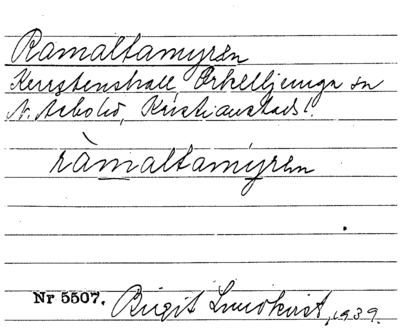 Ramaltamyren
Kerrstenshall, Örkelljunga sn
N. Åsbobd, Kristianstads l.
ràmaltamyren
Nr 5507. Birgit Lundkvist, 1939.